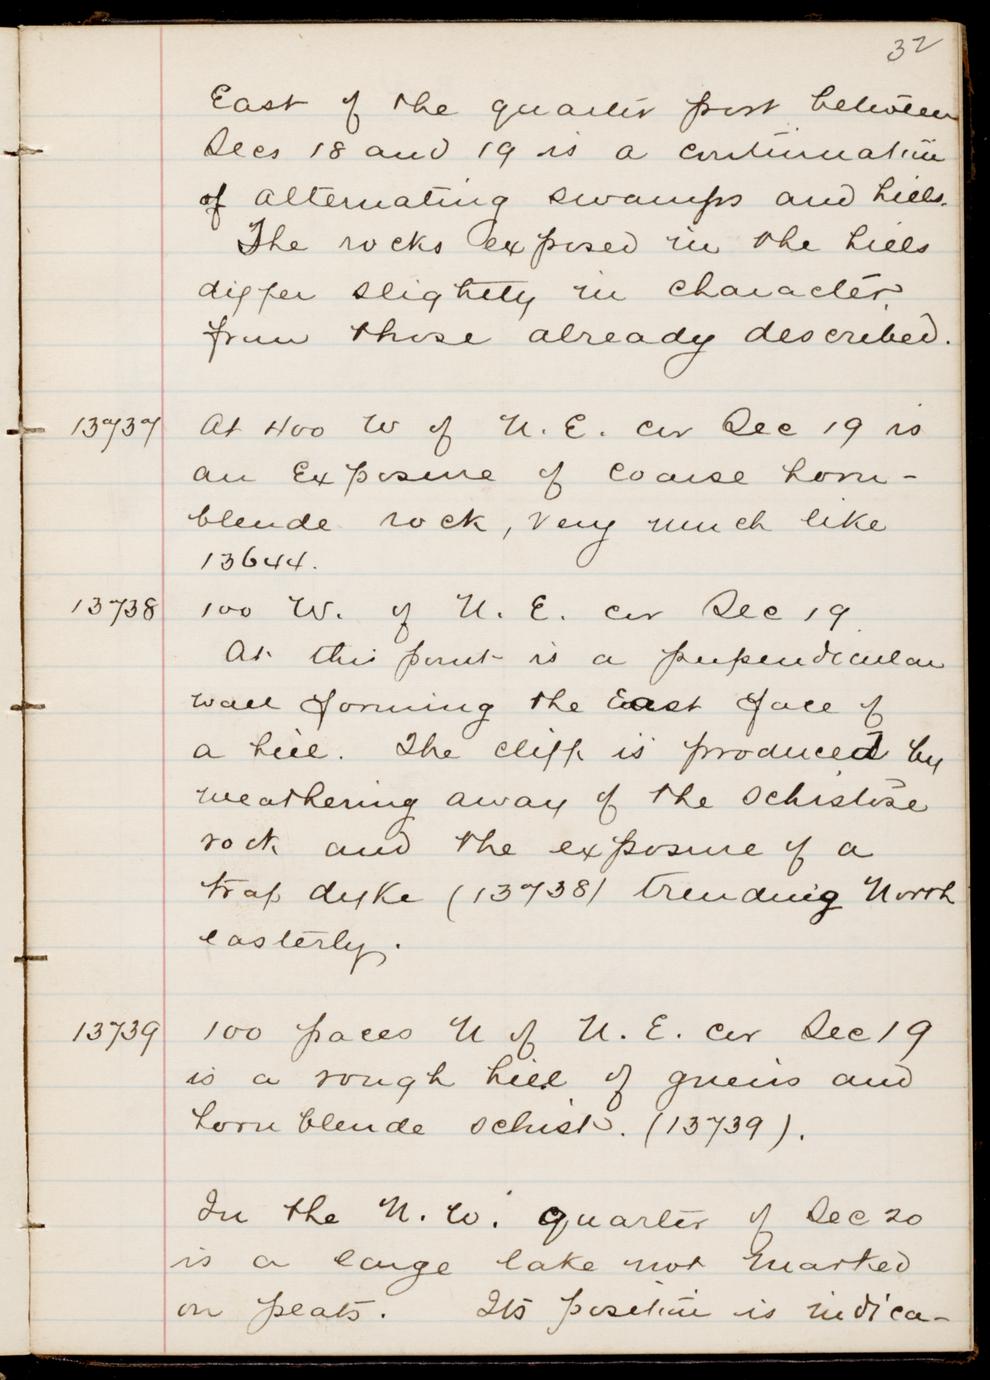 32
East of the quarter post between
Secs 18 and 19 is a continuation
of alternating swamps and hills.
The rocks exposed in the hills
differ slightly in character
from those already described.
13737 At 400 W of N. E. cor Sec 19 is
an Exposure of coarse horn-
blende rock, very much like
13644.
13738 100 W. of N. E. cor Sec 19
At this point is a perpendicular
wall forming the East face of
a hill. The cliff is produced by
weathering away of the schistose
rock and the exposure of a
trap dyke (13738) trending North
easterly.
13739 100 paces N of N. E. cor Sec 19
is a rough hill of gneiss and
hornblende schist. (13739).
In the N. W. quarter of Sec 20
is a large lake not marked
on plats. Its position is indica-